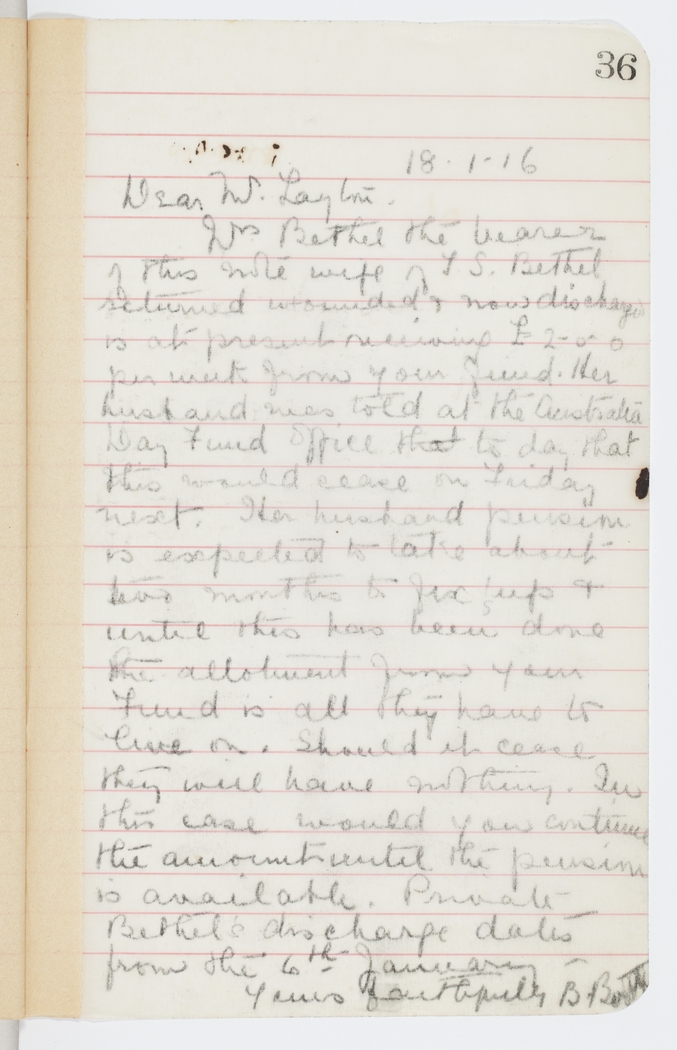 36
18-1-16
Dear Mr. Layton.
Mrs Bethel the bearer
of this note wife of T. S. Bethel
returned wounded & now discharged
is at present receiving £2-0-0
per week from your Fund. Her
husband was told at the Australia
Day Fund Office that to day that
this would cease on Friday
next. Her husband pension
is expected to take about
two months to fix up &
until this has been done
the allotment from your
Fund is all they have to
live on. Should it cease
they will have nothing. In
this case would you continue
the amount until the pension
is available. Private
Bethel's discharge dates
from the 6th January
Yours faithfully B Booth